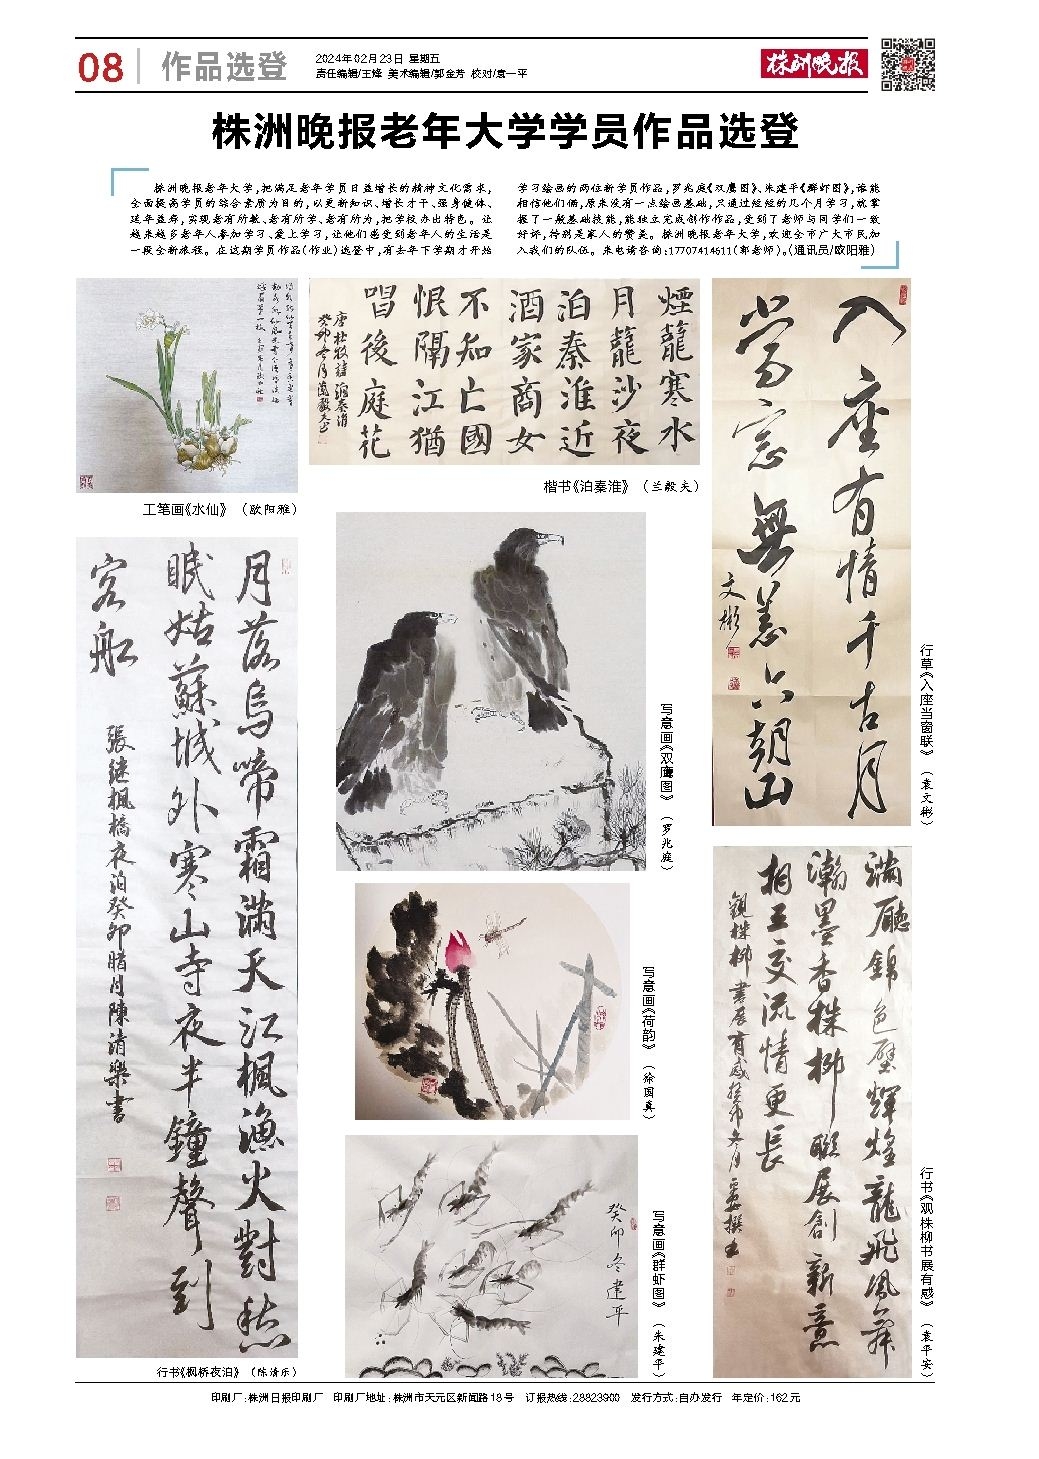 08
作品选登
2024年02月23日 星期五
责任编辑/王烽 美术编辑/郭金芳 校对/袁一平
株洲晚报
株洲晚报老年大学学员作品选登
株洲晚报老年大学,把满足老年学员日益增长的精神文化需求,
全面提高学员的综合素质为目的,以更新知识、增长才干、强身健体、
延年益寿,实现老有所教、老有所学、老有所为,把学校办出特色。让
越来越多老年人参加学习、爱上学习,让他们感受到老年人的生活是
一段全新旅程。在这期学员作品(作业)选登中,有去年下学期才开始
学习绘画的两位新学员作品,罗兆庭《双鹰图》、朱建平《群虾图》,谁能
相信他们俩,原来没有一点绘画基础,只通过短短的几个月学习,就掌
握了一般基础技能,能独立完成创作作品,受到了老师与同学们一致
好评,特别是家人的赞美。株洲晚报老年大学,欢迎全市广大市民加
入我们的队伍。来电请咨询:17707414611(郭老师)。(通讯员/欧阳雅)
工笔画《水仙》 (欧阳雅)
煙籠寒水
月籠沙夜
泊秦淮近
酒家商女
不知亡國
恨隔江猶
唱後庭花
唐杜牧詩泊秦淮
楷书《泊秦淮》 (兰毅夫)
入座有情千古月
當窓無恙六朝山
文彬
行草《入座当窗联》 (袁文彬)
月落烏啼霜滿天江楓漁火對愁
眠姑蘇城外寒山寺夜半鐘聲到
客船
張继楓橋夜泊癸卯腊月陳清樂書
行书《枫桥夜泊》 (陈清乐)
写意画《双鹰图》 (罗兆庭)
写意画《荷韵》 (徐国真)
癸卯冬建平
写意画《群虾图》 (朱建平)
满廳錦色壁輝煌龍飛風舞
瀚墨香株柳聯展創新意
相互交流情更長
觀株柳書展有感癸卯冬月平安撰书
行书《观株柳书展有感》 (袁平安)
印刷厂:株洲日报印刷厂 印刷厂地址:株洲市天元区新闻路18号 订报热线:28823900 发行方式:自办发行 年定价:162元